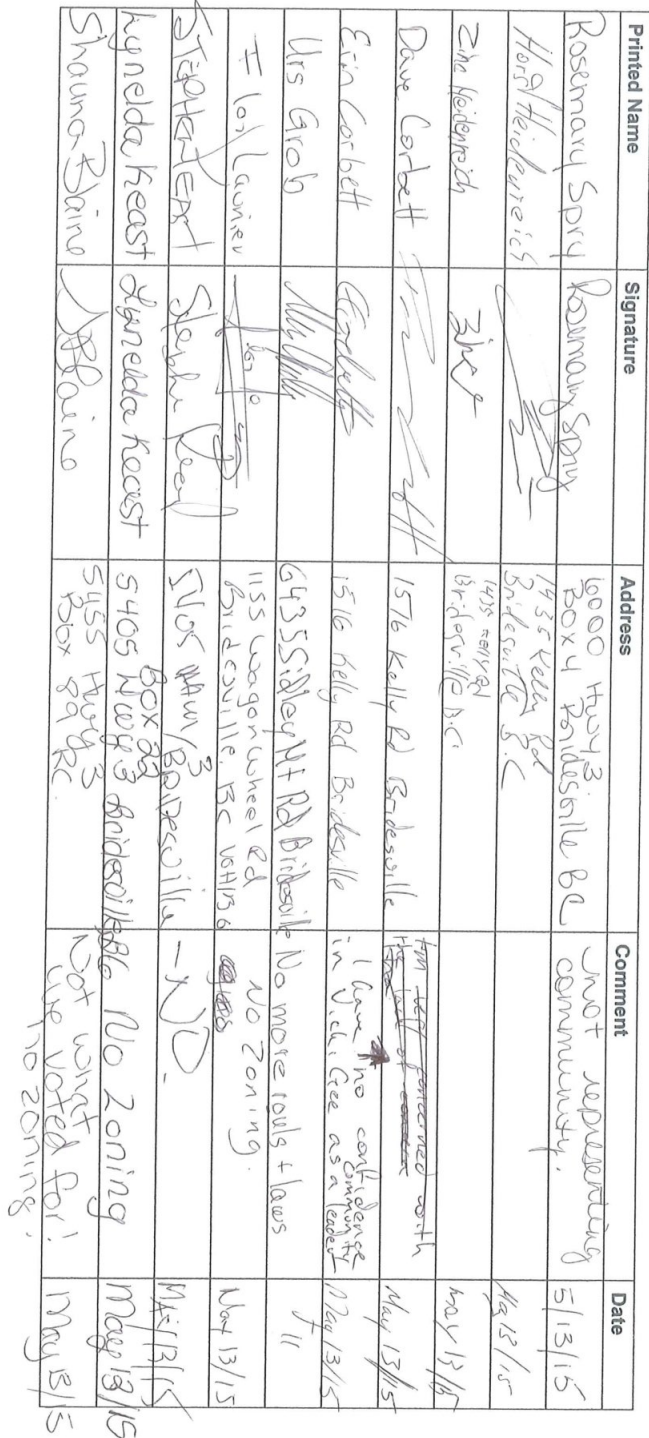 Printed Name Signature Address Comment Date
Rosemary Spry Rosemary Spry 6000 Hwy 3
Box 4 Bridesville BC not representing
community. 5/13/15
Horst Heidenreich 1435 Kelly Rd
Bridesville B.C 13/15
Zine Heidenreich Zine 1435 Kelly Rd
Bridesville B.C. May 13/15
Dave Corbett 1576 Kelly Rd Bridesville May 13/15
Erin Corbett 1516 Kelly Rd Bridesville I have no confidence
in Vicki Gee as a community leader May 13/15
Urs Grob 6435 Sidley Mt Rd Bridesville No more rouls + laws 11
Launier 1155 Wagon Wheel Rd
Bridesville, BC V0H1B0 No Zoning. May 13/15
STEPHEN KEAST Stephen Keast 5405 HWY 3 BRIDESVILLE - NO. MAY 13/15
Lynelda Keast Lynelda Keast Box 23
5405 Hwy 3 Bridesville BC No Zoning May 13/15
Shauna Blaine SBlaine 5455 Hwy 3
Box 89 RC. Not what
we voted for!
no zoning. May 13/15